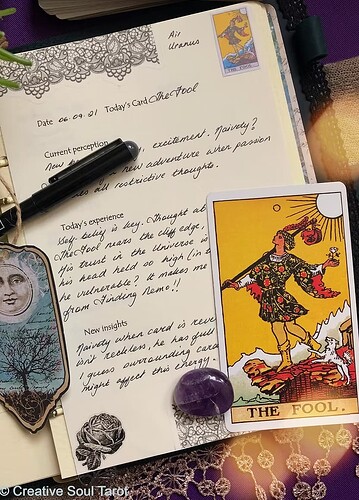 Air
Uranus
THE FOOL.
Date 06.09.21 Today's Card The Fool
Current perception
New excitement. Naivety?
new adventure when passion
all restrictive thoughts.
Today's experience
Self belief is key. Thought at
The Fool nears the cliff edge,
His trust in the Universe is
his head held so high (in t
he vulnerable? It makes me
from Finding Nemo!!
New insights
Naivety when card is reve
isn't reckless, he has full
I guess surrounding card
might affect this energy.
THE FOOL.
© Creative Soul Tarot